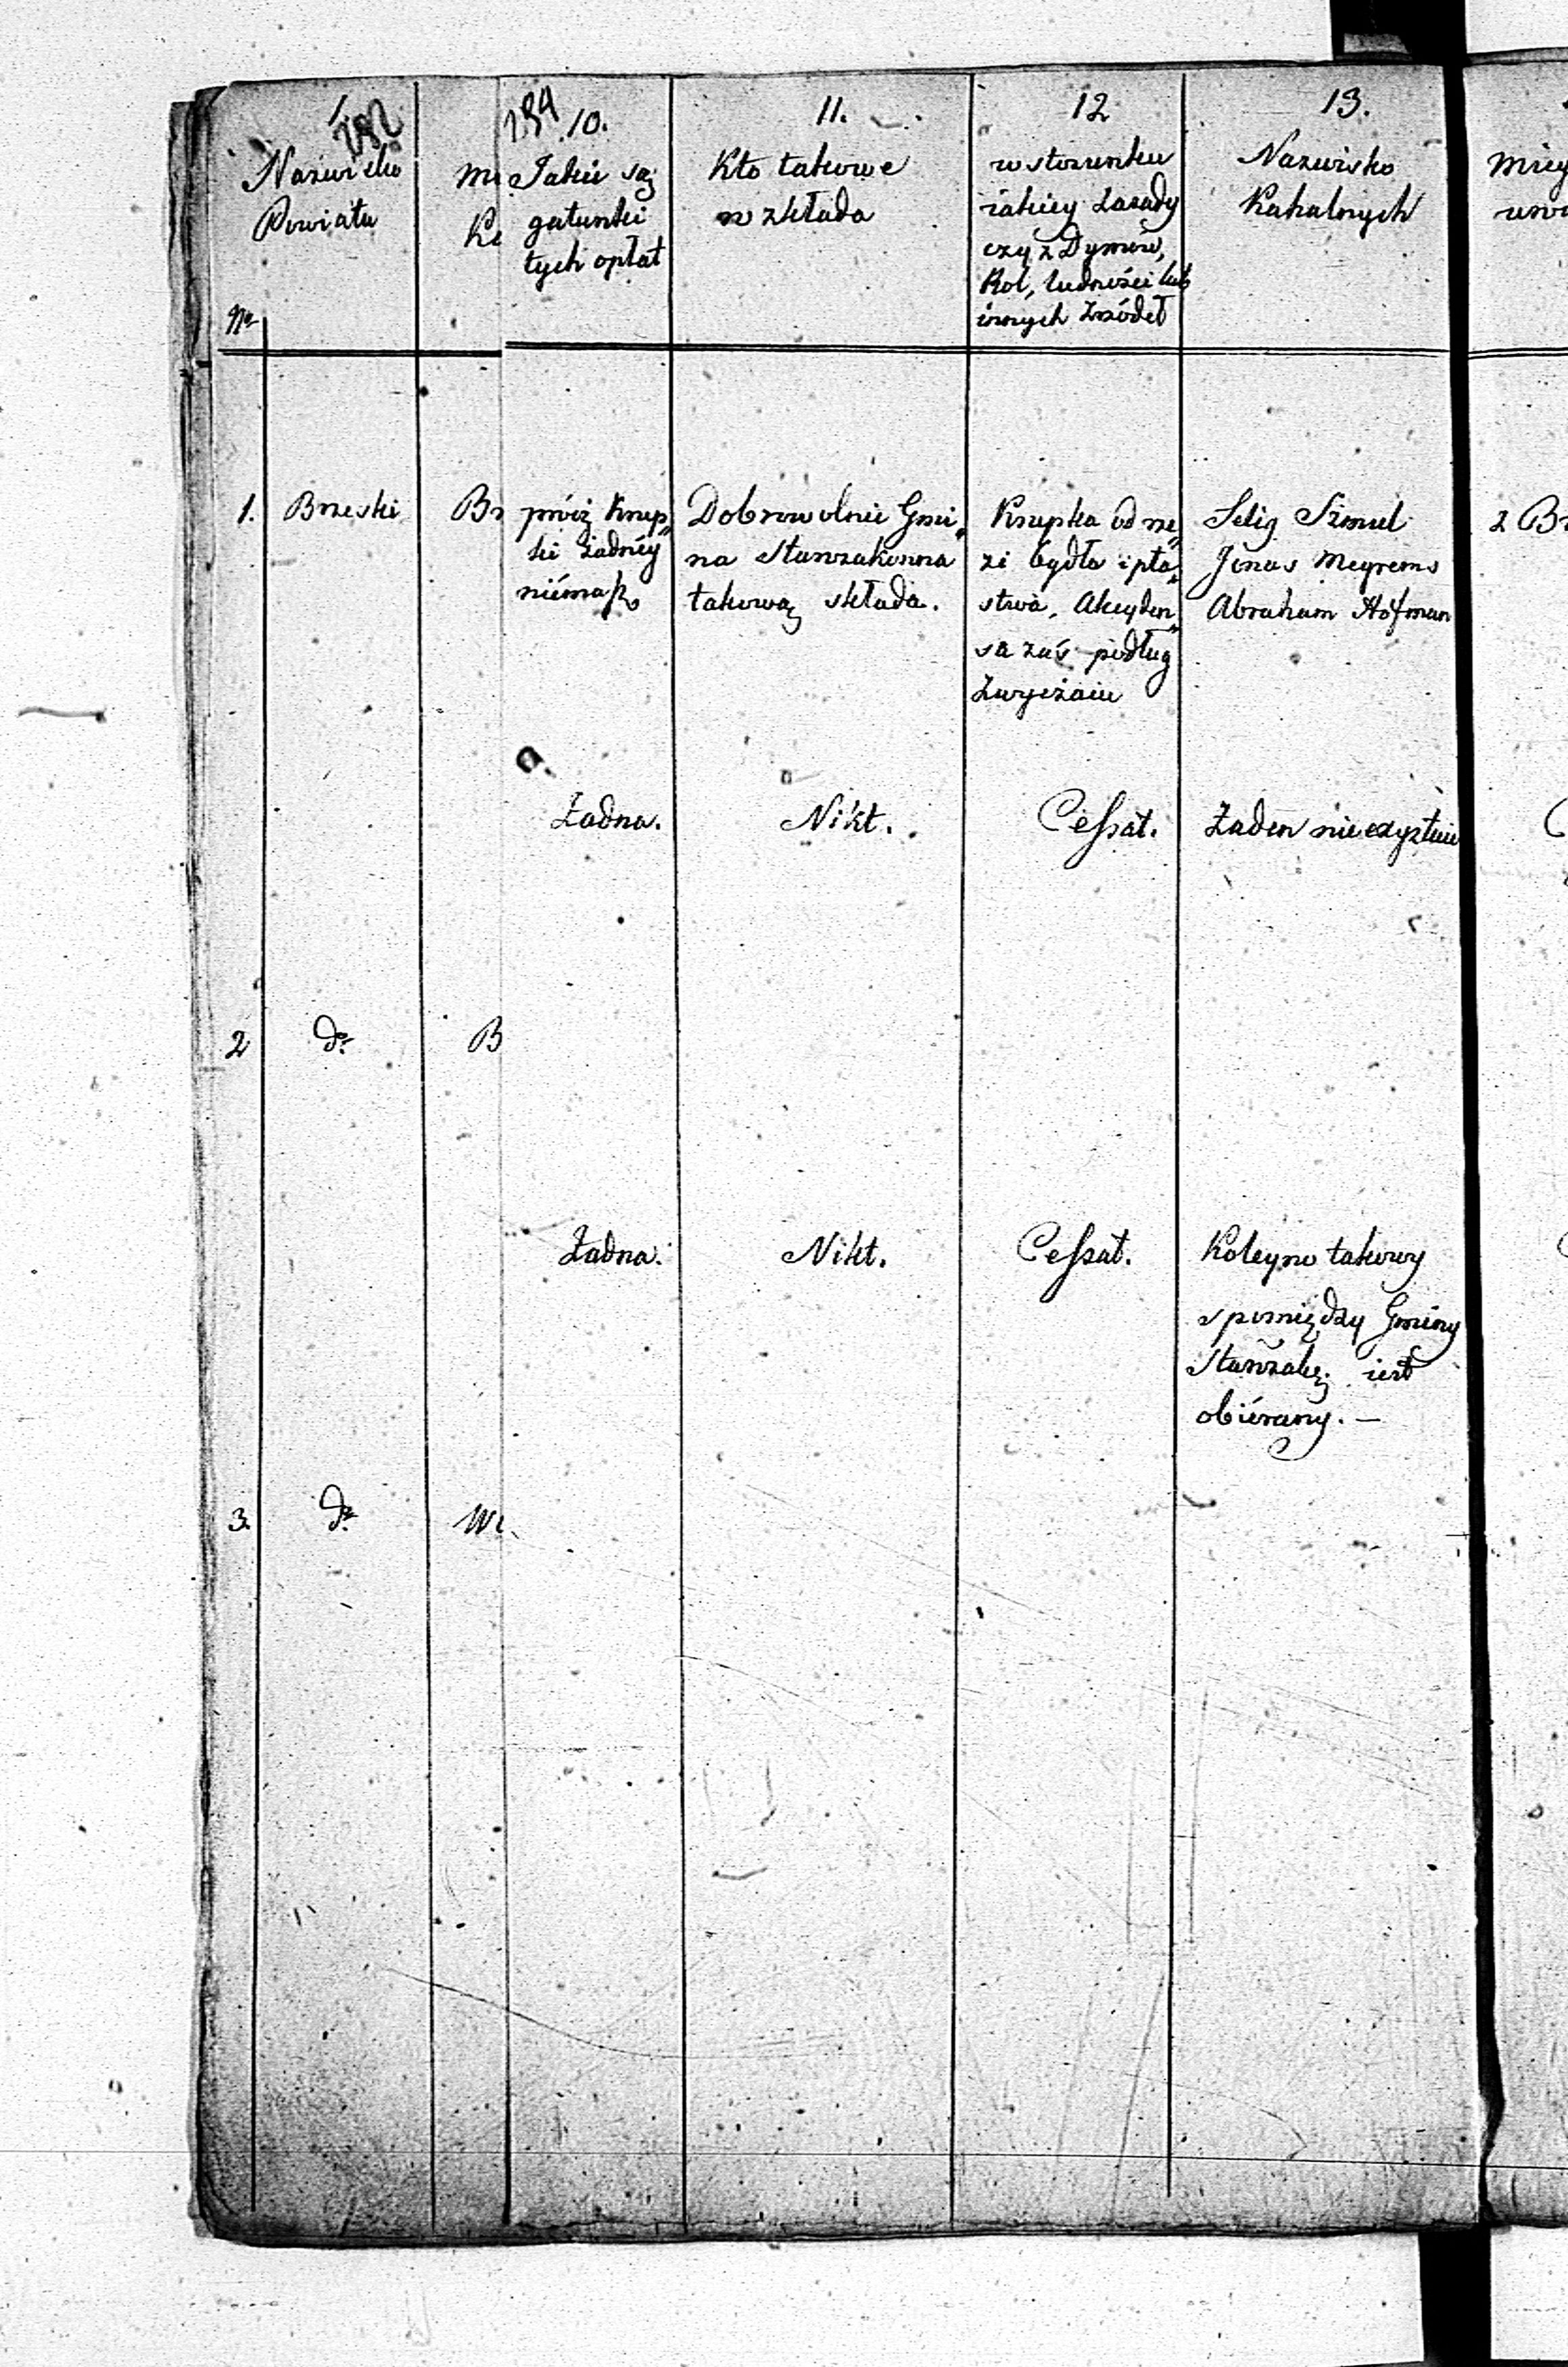 1 10. 11. 12 13.
282
284
Nazwisko
Powiatu
Nro
Jakie są
gatunki
tych opłat
Kto takowe
w zkłada
w stosunku
iakiey Zasady
czy z Dymów,
Rol, ludności lub
innych Zródeł
Nazwisko
Kahalnych
1. Brzeski
Br
próiż Krup„
ki żadnéy
niémasz
Dobrowolnie Gmi„
na Starozakonna
takową składa.
Krupka od rze„
zi bydła i pta„
stwa, Akcyden„
sa zaś podług
Zwyczaiu
Selig Szmul
Jonas Meyrems
Abraham Hofman
2 Br
Żadna. Nikt. Cessat. Żaden nie exystuie
2 do B
Żadna. Nikt. Cessat. Koleyno takowy
spomiędzy Gminy
Starozak. iest
obiérany. —
3. do